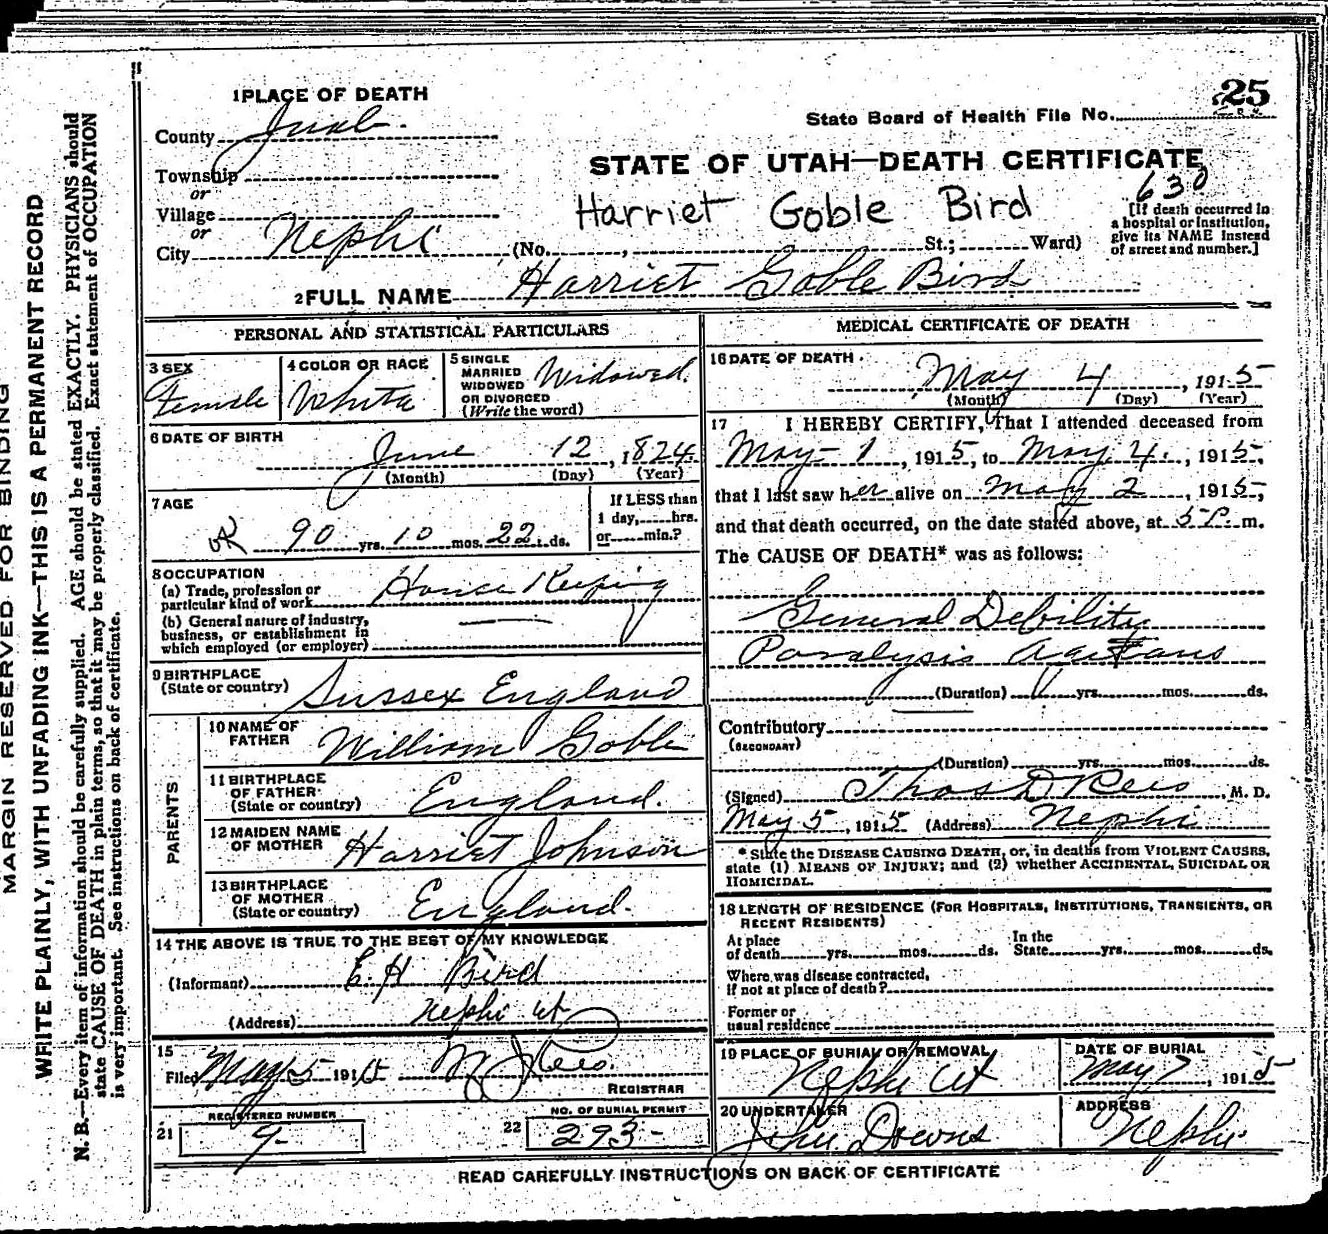 MARGIN RESERVED FOR BINDING
WRITE PLAINLY, WITH UNFADING INK—THIS IS A PERMANENT RECORD
N. B.—Every item of information should be carefully supplied. AGE should be stated EXACTLY. PHYSICIANS should
state CAUSE OF DEATH in plain terms, so that it may be properly classified. Exact statement of OCCUPATION
is very important. See instructions on back of certificate.
1 PLACE OF DEATH
County Juab
Township
or
Village
or
City Nephi (No. , St.; Ward)
25
State Board of Health File No.
STATE OF UTAH—DEATH CERTIFICATE
630
Harriet Goble Bird
[If death occurred in
a hospital or institution,
give its NAME instead
of street and number.]
2 FULL NAME Harriet Goble Bird
PERSONAL AND STATISTICAL PARTICULARS
3 SEX
Female
4 COLOR OR RACE
White
5 SINGLE
MARRIED
WIDOWED
OR DIVORCED
(Write the word)
Widowed
6 DATE OF BIRTH
June 12, 1824.
(Month) (Day) (Year)
7 AGE
90 yrs. 10 mos. 22 ds.
If LESS than
1 day, hrs.
or min.?
8 OCCUPATION
(a) Trade, profession or
particular kind of work House Keeping
(b) General nature of industry,
business, or establishment in
which employed (or employer)
9 BIRTHPLACE
(State or country) Sussex England
PARENTS
10 NAME OF
FATHER William Goble
11 BIRTHPLACE
OF FATHER
(State or country) England.
12 MAIDEN NAME
OF MOTHER Harriet Johnson
13 BIRTHPLACE
OF MOTHER
(State or country) England.
14 THE ABOVE IS TRUE TO THE BEST OF MY KNOWLEDGE
(Informant) E. H. Bird
(Address) Nephi Ut
15
Filed May 5 191
REGISTRAR
REGISTERED NUMBER
21 9
NO. OF BURIAL PERMIT
22 293-
MEDICAL CERTIFICATE OF DEATH
16 DATE OF DEATH
May 4, 1915
(Month) (Day) (Year)
17 I HEREBY CERTIFY, That I attended deceased from
May 1, 1915, to May 4., 1915,
that I last saw her alive on May 2, 1915,
and that death occurred, on the date stated above, at 5 P. m.
The CAUSE OF DEATH* was as follows:
General Debility
Paralysis Agitans
(Duration) yrs. mos. ds.
Contributory
(SECONDARY)
(Duration) yrs. mos. ds.
(Signed) Thos D Rees M. D.
May 5, 1915 (Address) Nephi
* State the DISEASE CAUSING DEATH, or, in deaths from VIOLENT CAUSES,
state (1) MEANS OF INJURY; and (2) whether ACCIDENTAL, SUICIDAL OR
HOMICIDAL.
18 LENGTH OF RESIDENCE (FOR HOSPITALS, INSTITUTIONS, TRANSIENTS, OR
RECENT RESIDENTS)
At place
of death yrs. mos. ds.
In the
State yrs. mos. ds.
Where was disease contracted,
if not at place of death?
Former or
usual residence
19 PLACE OF BURIAL OR REMOVAL
Nephi Ut
DATE OF BURIAL
May 7, 1915
20 UNDERTAKER
John Downs
ADDRESS
Nephi
READ CAREFULLY INSTRUCTIONS ON BACK OF CERTIFICATE